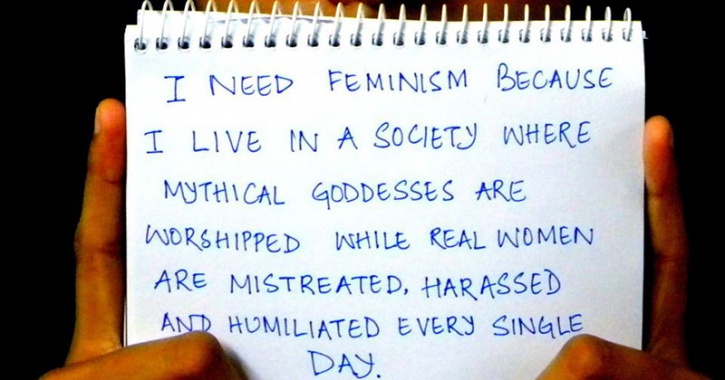 I NEED FEMINISM BECAUSE
I LIVE IN A SOCIETY WHERE
MYTHICAL GODDESSES ARE
WORSHIPPED WHILE REAL WOMEN
ARE MISTREATED, HARASSED
AND HUMILIATED EVERY SINGLE
DAY.